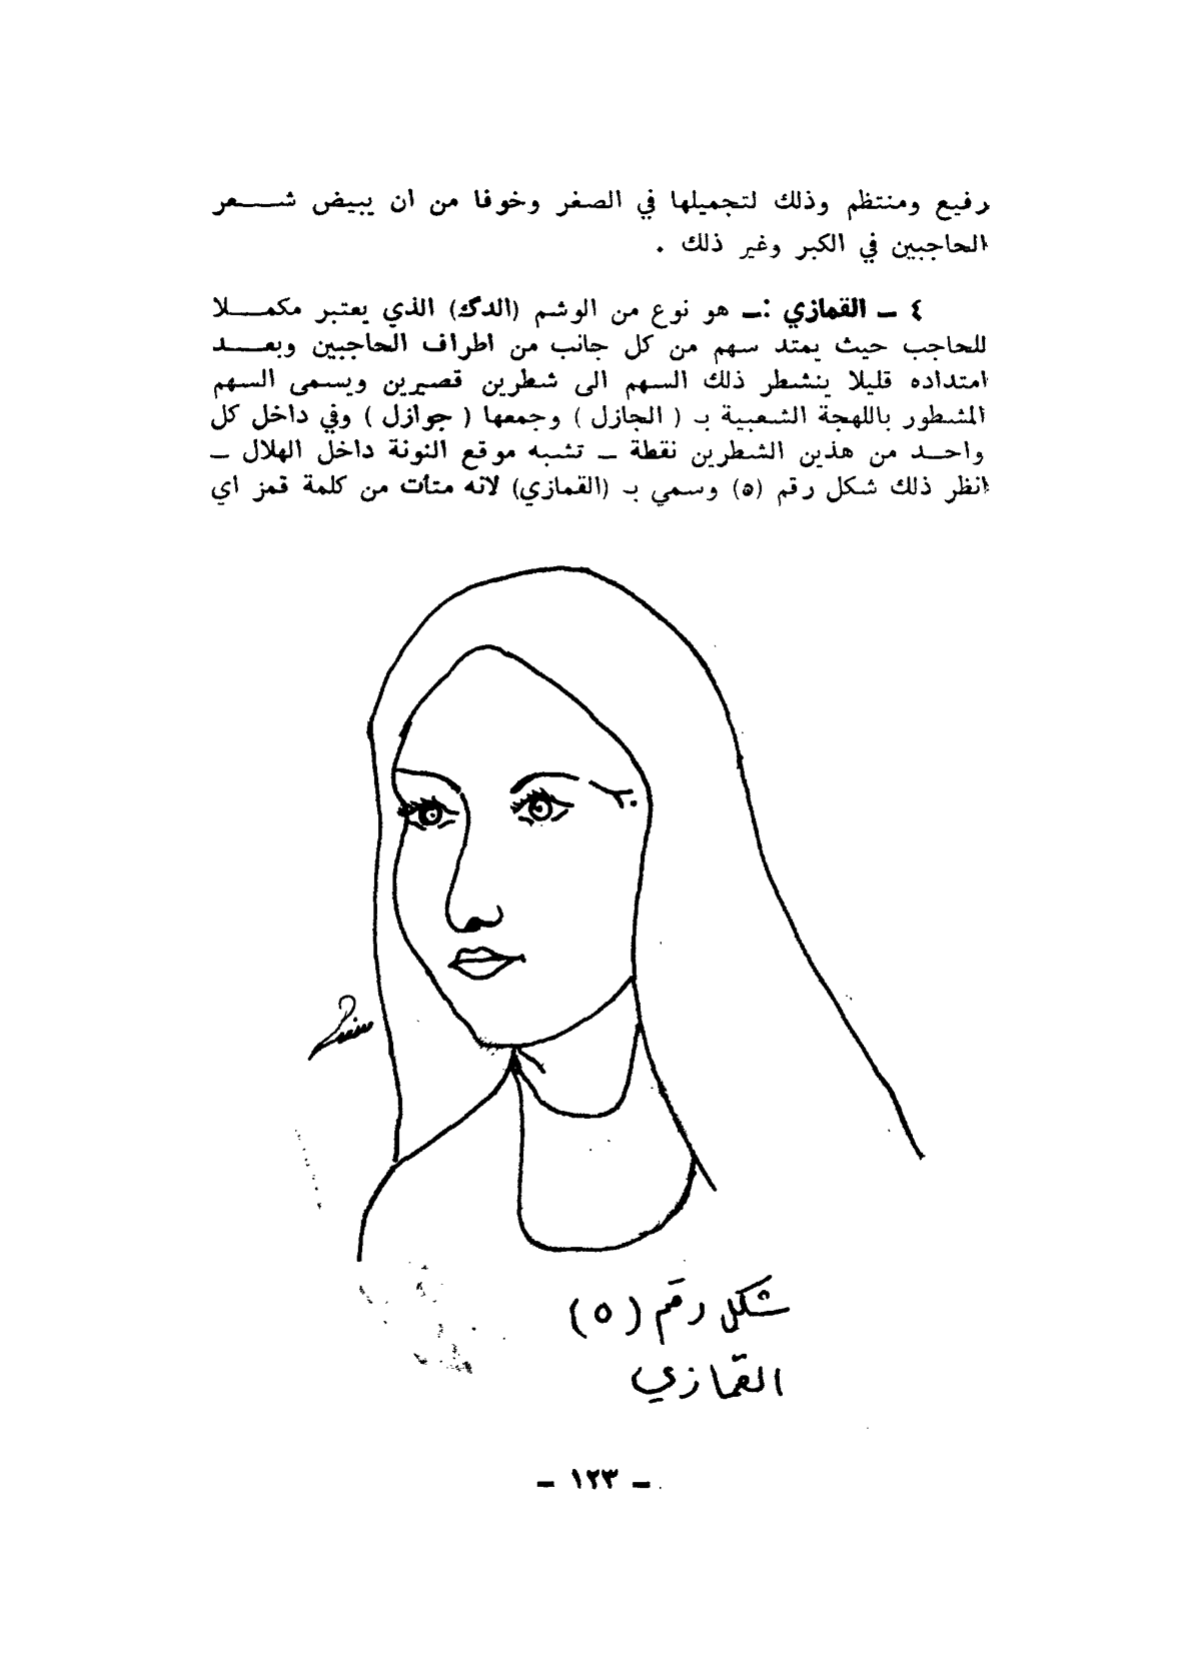 رفيع ومنتظم وذلك لتجميلها في الصغر وخوفا من ان يبيض شعر
الحاجبين في الكبر وغير ذلك .
٤ ـ القمازي :ـ هو نوع من الوشم (الدگ) الذي يعتبر مكملا
للحاجب حيث يمتد سهم من كل جانب من اطراف الحاجبين وبعد
امتداده قليلا ينشطر ذلك السهم الى شطرين قصيرين ويسمى السهم
المشطور باللهجة الشعبية بـ ( الجازل ) وجمعها ( جوازل ) وفي داخل كل
واحد من هذين الشطرين نقطة ـ تشبه موقع النونة داخل الهلال ـ
انظر ذلك شكل رقم (٥) وسمي بـ (القمازي) لانه متأت من كلمة قمز اي
شكل رقم (٥)
القمازي
ـ ١٢٣ ـ